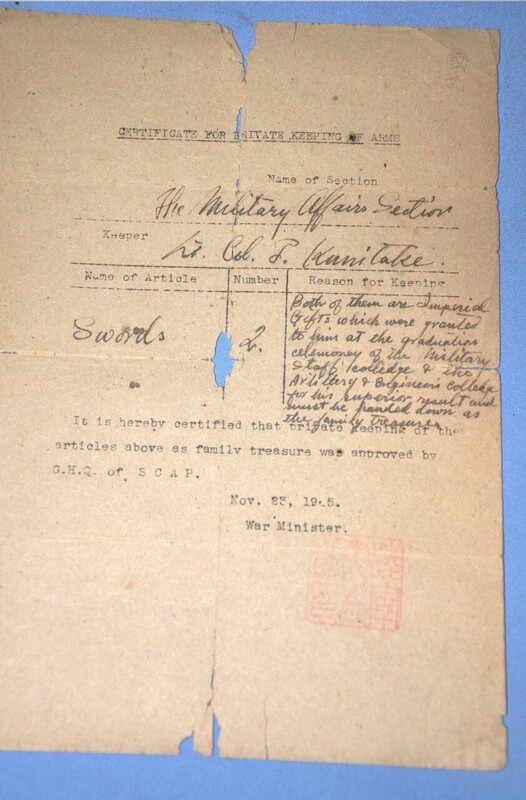 CERTIFICATE FOR PRIVATE KEEPING OF ARMS
Name of Section
The Military Affairs Section
Keeper
Lt. Col. T. Kunitake.
Name of Article Number Reason for Keeping
Swords 2.
Both of them are Imperial
Gifts which were granted
to him at the graduation
ceremoney of the Military
Staff colledge & the
Artillery & Engineers Colledge
for his superior result and
must be handed down as
the family treasures
It is hereby certified that private keeping of the
articles above as family treasure was approved by
G.H.Q. of S C A P.
Nov. 23, 1945.
War Minister.